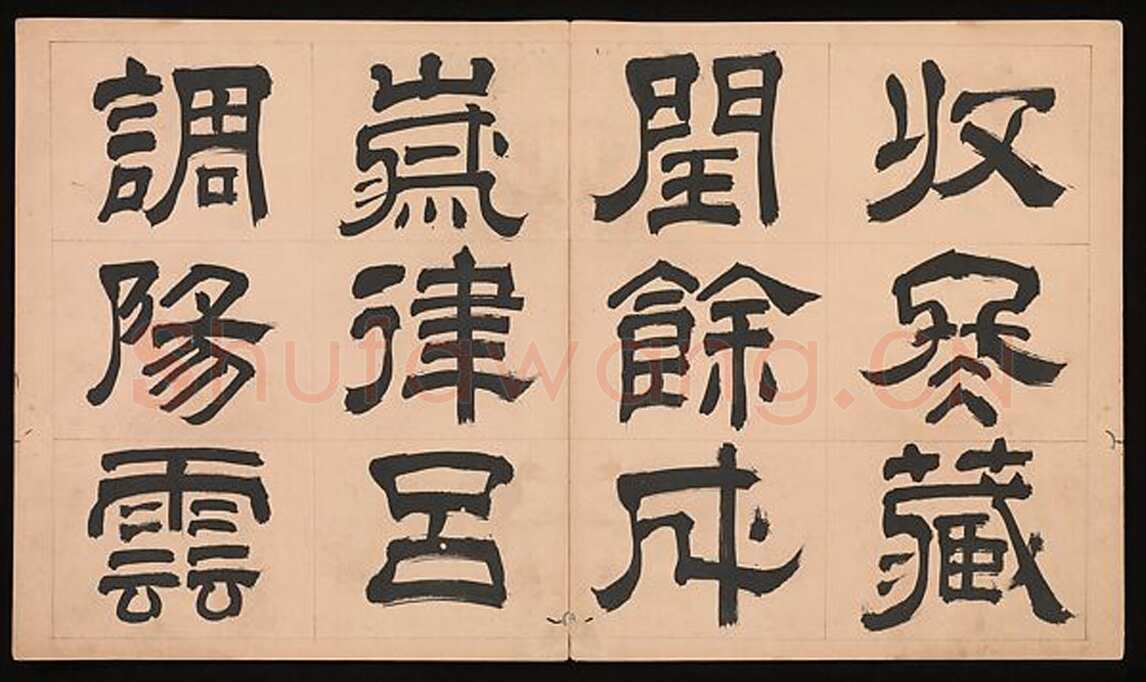 收冬藏
閏餘成
歲律呂
調陽雲
shufawang.cn